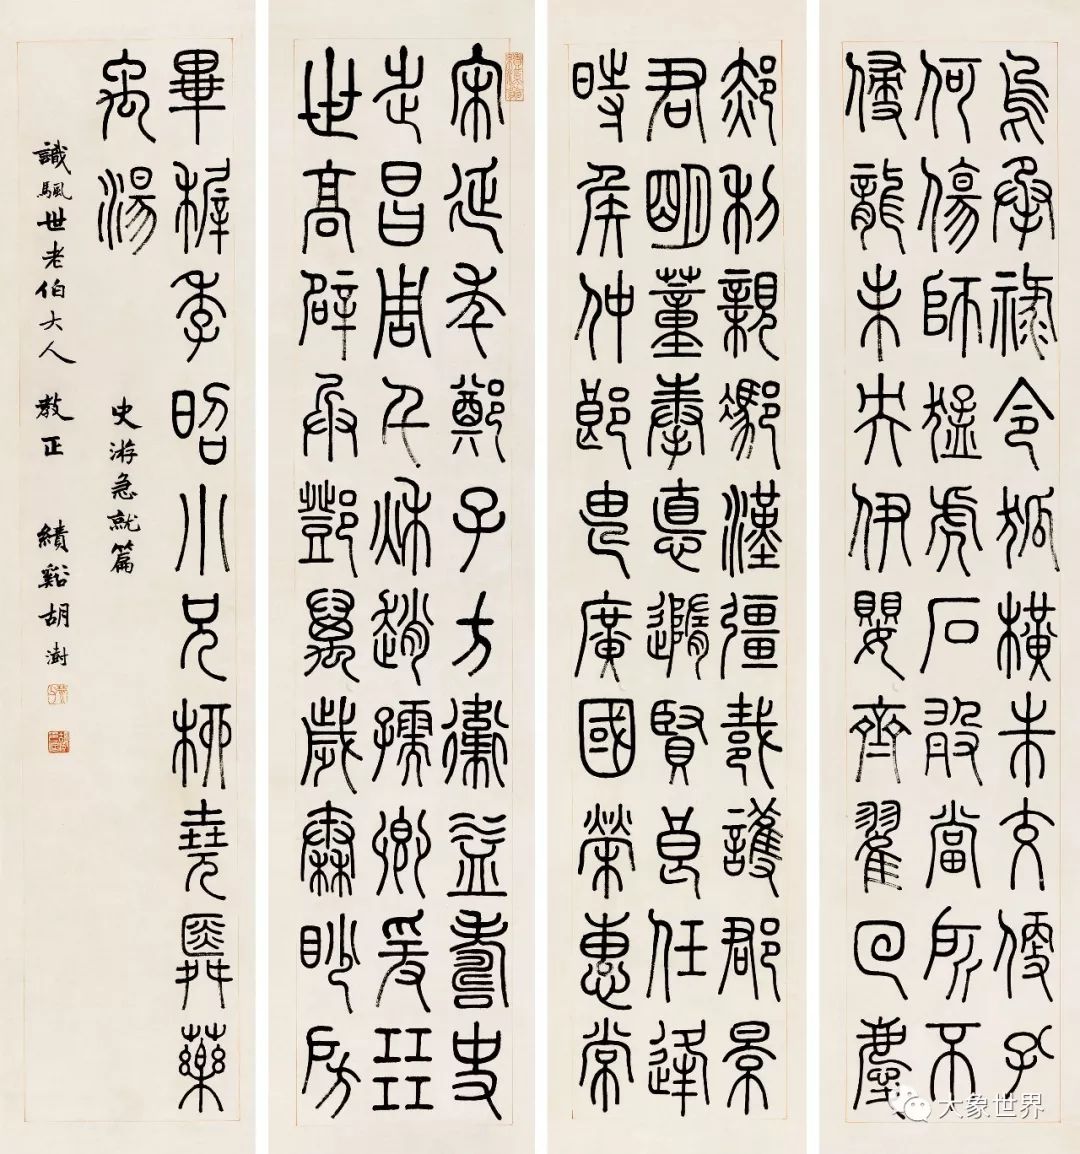 烏承祿令狐橫朱交便孔
何傷師猛虎石敢當所不
侵龍未央伊嬰齊翟回慶
郝利親漢彊戴護郡景
君明董奉惪賢良任逢
時侯仲郎由廣國榮惠常
宋延年鄭子方衛益壽史
步昌周千秋趙孺卿爰展
世高辟兵鄧萬歲秦眇房
畢稺季昭小兄柳堯舜藥
禹湯
史游急就篇
識颿世老伯大人 教正 績谿胡澍
大象世界